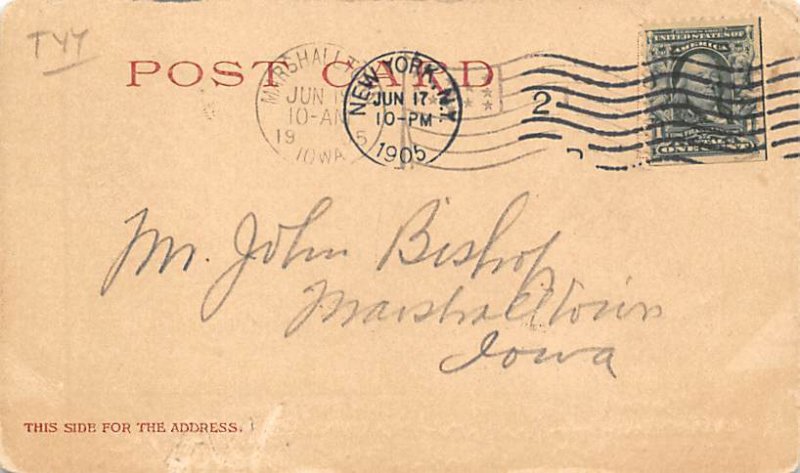 TYY
POST CARD
MARSHALLT
JUN 19
10-AM
19 5
IOWA
NEW YORK, N.Y.
JUN 17
10-PM
1905
2
UNITED STATES OF
AMERICA
Mr. John Bishop
Marshalltown
Iowa
THIS SIDE FOR THE ADDRESS.